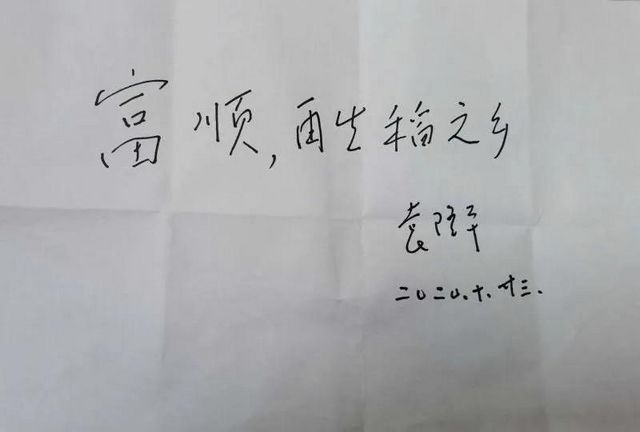 富顺,再生稻之乡
袁隆平
二0二0.十.廿三.